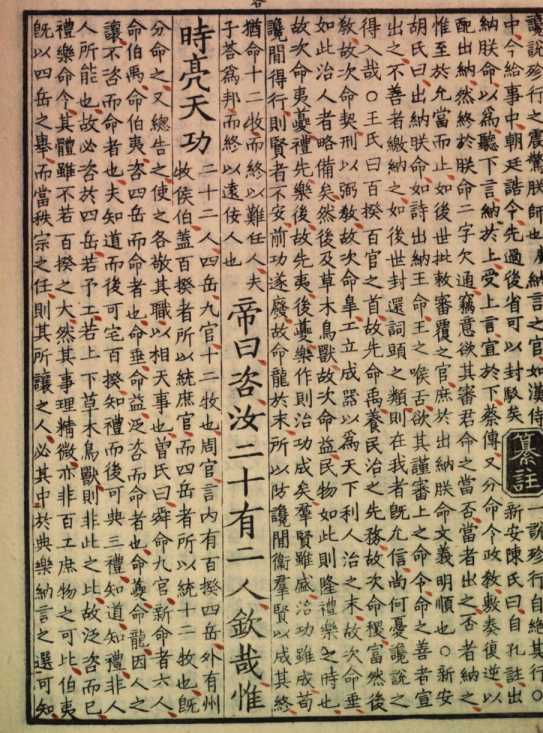 讒說殄行之震驚朕師也○納言之官如漢侍
中今給事中朝廷誥令先過後省可以封駁矣
納朕命以爲聽下言納於上受上言宣於下蔡傳又分命令政教敷奏復逆以
配出納然終於朕命二字欠通竊意欲其審君命之當否當者出之否者納之
惟至於允當而止如後世批敕審覆之官庶於出納朕命文義明順也○新安
胡氏曰出納朕命如詩出納王命王之喉舌欲其謹審上之命令命之善者宣
出之不善者繳納之如後世封還詞頭之類則在我者旣允信尚何憂讒說之
得入哉○王氏曰百揆百官之首故先命禹養民治之先務故次命稷富然後
敎故次命契刑以弼敎故次命臯工立成器以爲天下利人治之末故次命垂
如此治人者略備矣然後及草木鳥獸故次命益民物如此則隆禮樂之時也
故次命夷夔禮先樂後故先夷後夔樂作則治功成矣羣賢雖盛治功雖成苟
讒間得行則賢者不安前功遂廢故命龍於末所以防讒間衛羣賢以成其終
猶命十二牧而終以難任人夫
子荅爲邦而終以遠佞人也
帝曰咨汝二十有二人欽哉惟
時亮天功
二十二人四岳九官十二牧也周官言內有百揆四岳外有州
牧侯伯蓋百揆者所以統庶官而四岳者所以統十二牧也旣
分命之又總告之使之各敬其職以相天事也曾氏曰舜命九官新命者六人
命伯禹命伯夷咨四岳而命者也命垂命益泛咨而命者也命夔命龍因人之
讓不咨而命者也夫知道而後可宅百揆知禮而後可典三禮知道知禮非人
人所能也故必咨於四岳若予工若上下草木鳥獸則非此之比故泛咨而已
禮樂命令其體雖不若百揆之大然其事理精微亦非百工庶物之可比伯夷
旣以四岳之舉而當秩宗之任則其所讓之人必其中於典樂納言之選可知
纂註
一說殄行自絶其行○
新安陳氏曰自孔註出